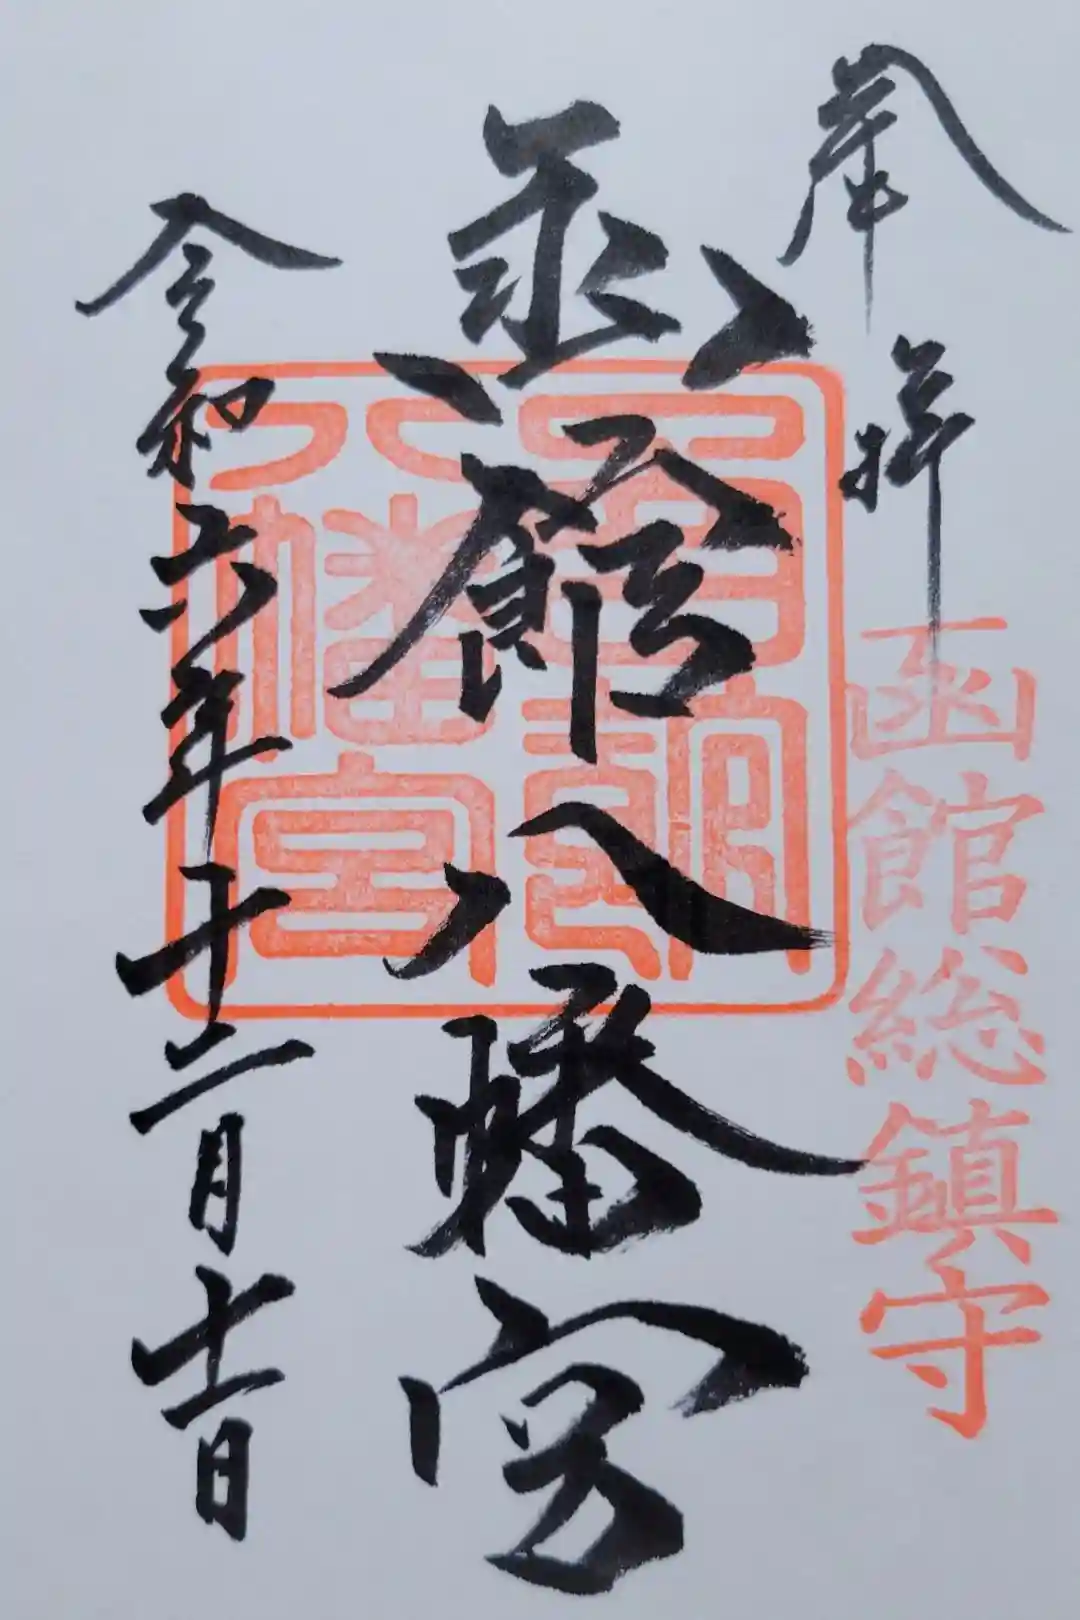 奉拝
函館総鎮守
函館八幡宮
函館
八幡宮
令和六年十二月十一日